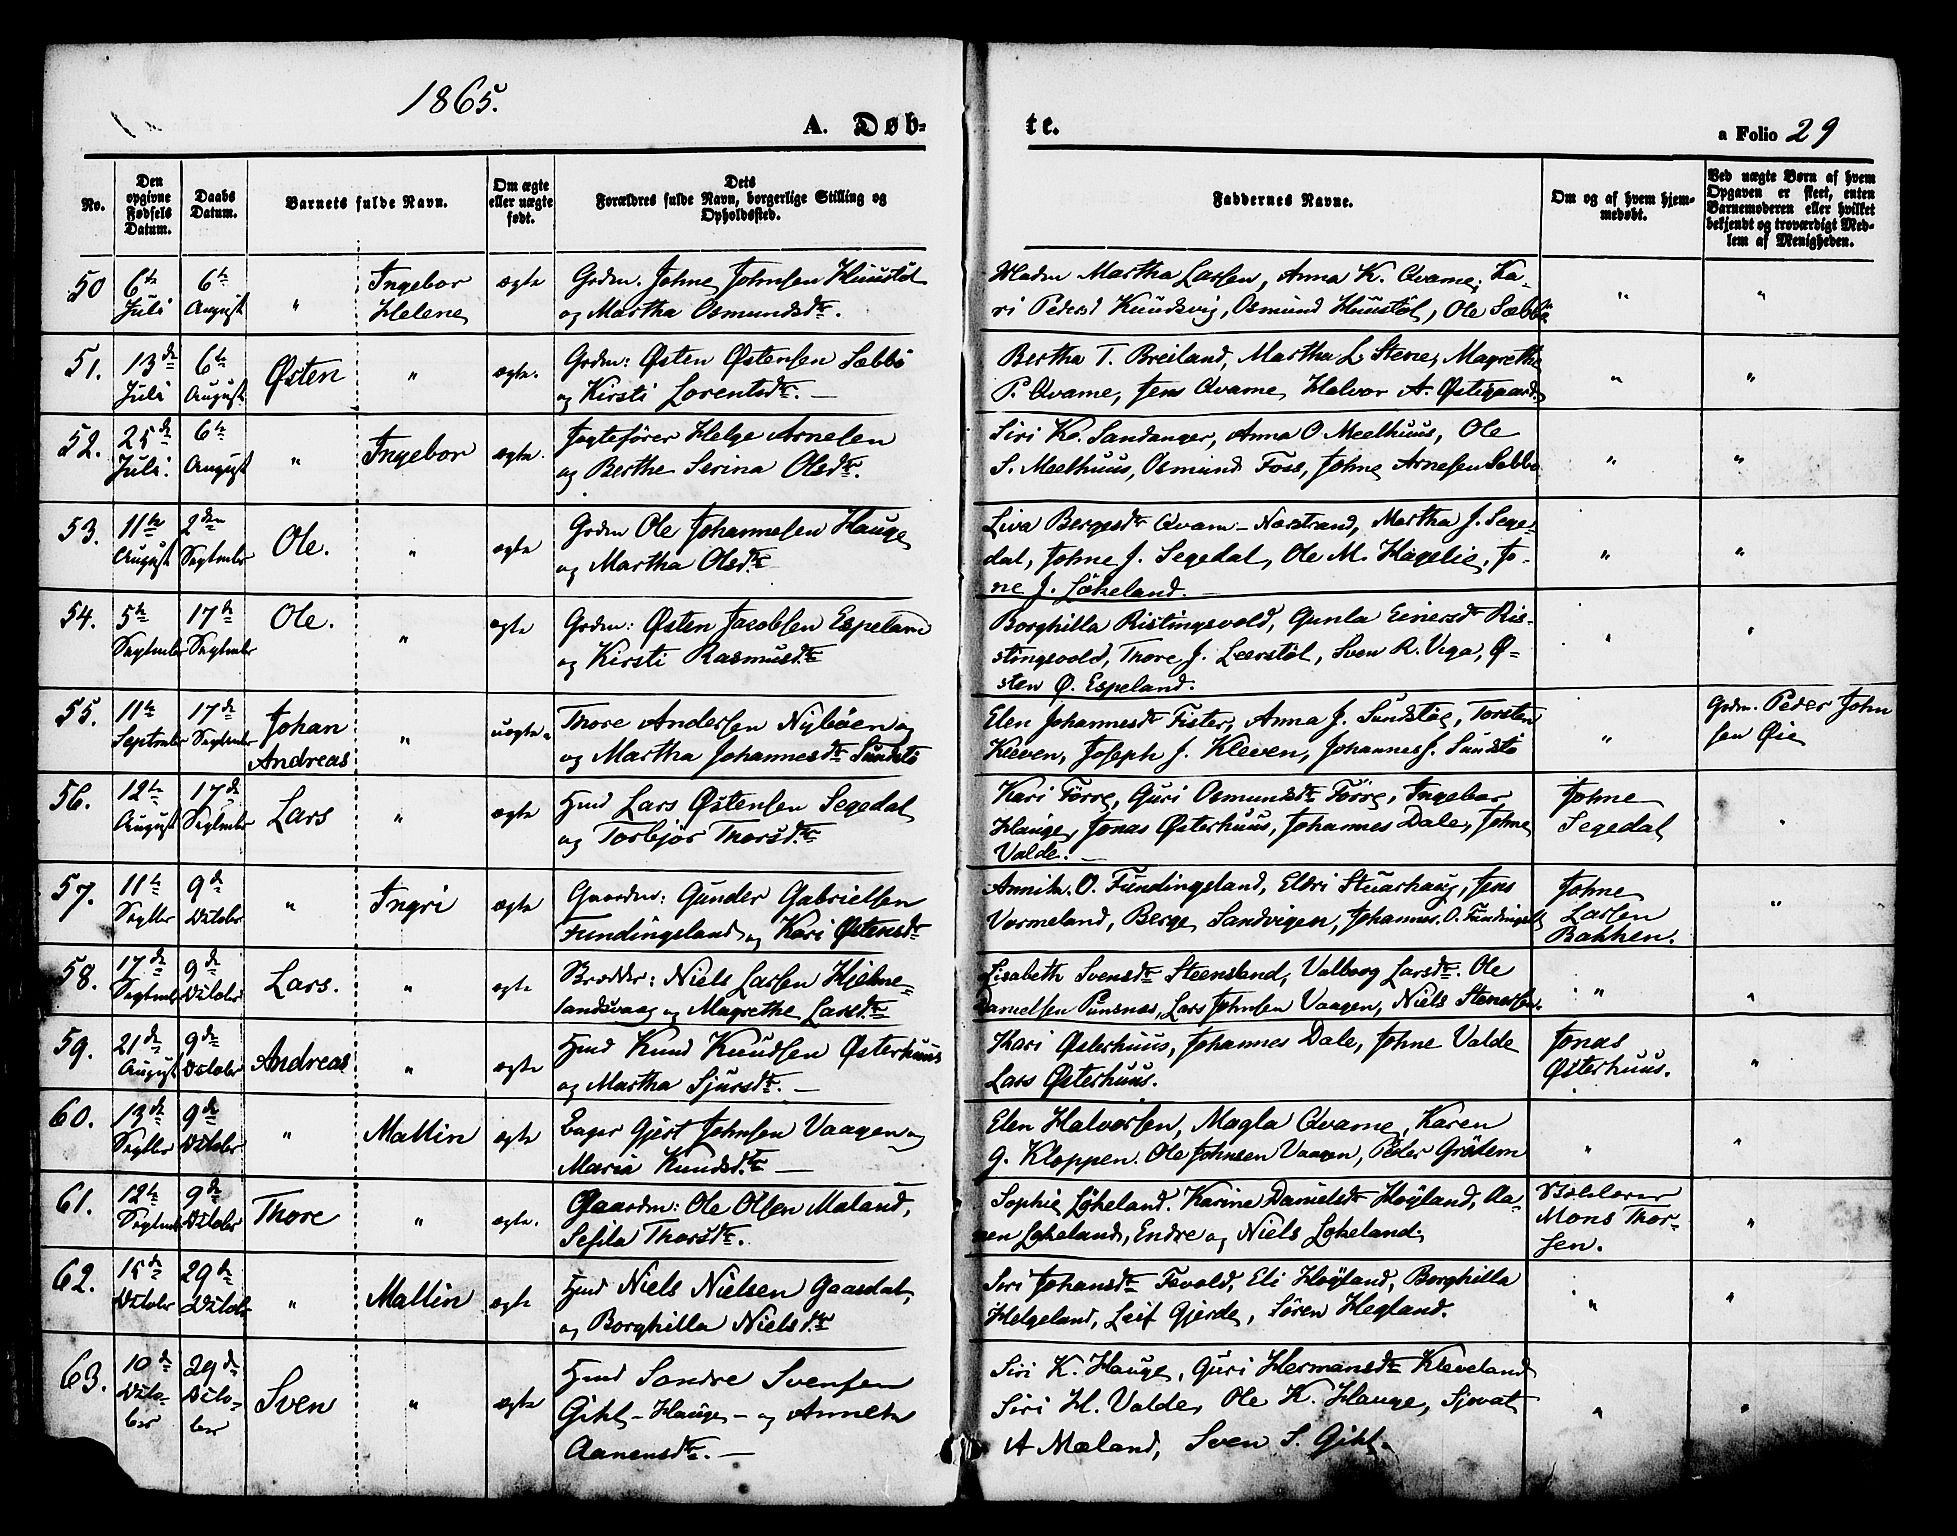 1865.
A. Døb-
te.
a Folio 29
No.
Den opgivne Fødsels Datum.
Daabs Datum.
Barnets fulde Navn.
Om ægte eller uægte født.
Dets Forældres fulde Navn, borgerlige Stilling og Opholdssted.
Faddernes Navne.
Om og af hvem hjemmedøbt.
Ved uægte Børn af hvem Opgaven er skeet, enten Barnemoderen eller hvilket bekjendt og troværdigt Medlem af Menigheden.
50 6te Juli 6te August " Ingebor Helene ægte
Grdm. Johne Johnsen Huustöl
og Martha Osmundsdtr.
Madm Martha Larsen, Anna K. Qvame, Ka-
ri Pedersd Knudsvig, Osmund Huustöl, Ole Sæbbö
" "
51. 13de Juli 6te August Østen " ægte.
Grdm: Østen Østensen Sæbbö
og Kirsti Lorentsdtr. —
Bertha T. Breiland, Martha L Stene, Magrethe
P. Qvame, Jens Qvame, Halvor A. Østigaard.
" "
52. 25de Juli. 6te August " Ingebor ægte.
Jægtefører Helge Arnesen
og Berthe Serina Olsdtr.
Siri K. Sandanger, Anna O Meelhuus, Ole
S. Meelhuus, Osmund Foss, Johne Arnesen Sæbbö
" "
53. 11te August 2den September Ole. " ægte
Grdm Ole Johannesen Hauge
og Martha Olsdtr
Liva Bergesdtr Qvam - Nærstrand, Martha J. Sege-
dal, Johne J. Segedal, Ole M. Hagelie, Jo-
ne J. Lökeland. —
" "
54. 5te September 17de September Ole. " ægte
Grdm: Østen Jacobsen Espeland
og Kirsti Rasmusdtr
Borghilla Ristingsvold, Gunla Einersdtr Ris-
stingsvold, Thore J. Leerstöl, Sven R. Viga, Ø-
sten Ø. Espeland.
" "
55. 11te September 17de September Johan Andreas " uægte.
Thore Andersen Nyböen og
og Martha Johannesdtr Sundstö
Elen Johannesdtr Fister, Anna J. Sundstöe, Torsten
Kleven, Joseph J. Kleven, Johannes J. Sundstö
"
Grdm. Peder John
sen Øie
56. 12te August 17de September Lars " ægte
Hmd Lars Østensen Segedal
og Torbjör Thorsdtr
Kari Förre, Guri Osmundsdtr Förre, Ingebor
Hauge, Jonas Østerhuus, Johannes Dale, Johne
Valde. —
Johne
Segedal
"
57. 11te Septbr 9de October " Ingri ægte
Gaardm: Gunder Gabrielsen
Fundingsland og Kari Østensdtr
Annike O. Fundingsland, Eldri Stuarhaug, Jens
Vormeland, Berge Sandvigen, Johannes O. Fundingsl
Johne
Larsen
Bakken.
"
58. 17de September 9de October Lars. " ægte
Niels Larsen Hjelme-
landsvaag og Magrethe Larsdtr
Lisabeth Svensdtr Steensland, Valborg Larsdtr. Ole
Danielsen Punsnæs, Lars Johnsen Vaagen, Niels Stenersen.
" "
59. 21de August 9de October Andreas " ægte
Hmd Knud Knudsen Østerhuus
og Martha Sjursdtr. —
Kari Østerhuus, Johannes Dale, Johne Valde
Lars Østerhuus.
Jonas
Østerhuus.
"
60. 13de Septbr 9de October " Mallin ægte
Gjert Johnsen Vaagen og
Maria Knudsdtr. —
Elen Halvorsen, Magla Qvame, Karen
G. Kloppen. Ole Johnsen Vaagen, Peder Grötem
" "
61. 12te September 9de October Thore " ægte.
Gaardm: Ole Olsen Maland,
Sesila Thorsdtr.
Sophie Lökeland. Karine Danielsdtr Höyland, Aa-
nen Lökeland, Endre og Niels Lökeland.
Mons Thor-
sen.
"
62. 15de October 29de October " Mallin ægte
Hmd Niels Nielsen Gaasdal,
og Borghilla Nielsdtr
Siri Johansdtr Tevold, Eli Höyland, Borghilla
Helgeland, Leif Gjerde, Sören Hegland.
" "
63. 10de October 29de October Sven " ægte
Hmd Sondre Svensen
Gihl - Hauge - og Annek
Aanensdtr. —
Siri K. Hauge, Guri Hermansdtr Kleveland
Siri H. Valde, Ole K. Hauge, Sjovat
A Mæland, Sven S. Gihl.
" "